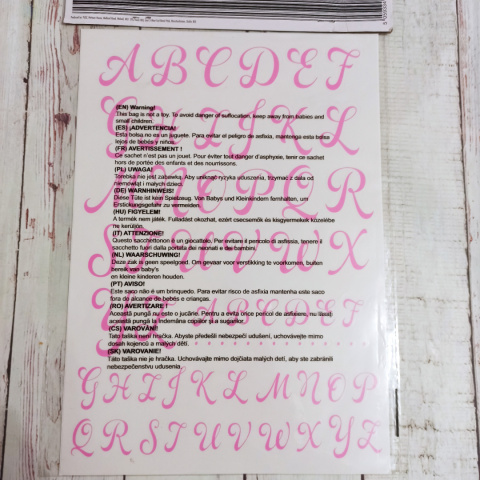 A B C D E F
G H I J K L
(EN) Warning!
This bag is not a toy. To avoid danger of suffocation, keep away from babies and
small children.
(ES) ¡ADVERTENCIA!
Esta bolsa no es un juguete. Para evitar el peligro de asfixia, mantenga esta bolsa
lejos de bebés y niños.
(FR) AVERTISSEMENT !
Ce sachet n'est pas un jouet. Pour éviter tout danger d'asphyxie, tenir ce sachet
hors de portée des enfants et des nourrissons.
M N O P Q R
(PL) UWAGA!
Torebka nie jest zabawką. Aby uniknąć ryzyka uduszenia, trzymać z dala od
niemowląt i małych dzieci.
(DE) WARNHINWEIS!
Diese Tüte ist kein Spielzeug. Von Babys und Kleinkindern fernhalten, um
Erstickungsgefahr zu vermeiden.
(HU) FIGYELEM!
A termék nem játék. Fulladást okozhat, ezért csecsemők és kisgyermekek közelébe
ne kerüljön.
S T U V W X
(IT) ATTENZIONE!
Questo sacchetto non è un giocattolo. Per evitare il pericolo di asfissia, tenere il
sacchetto fuori dalla portata dei neonati e dei bambini.
(NL) WAARSCHUWING!
Deze zak is geen speelgoed. Om gevaar voor verstikking te voorkomen, buiten
bereik van baby's
en kleine kinderen houden.
(PT) AVISO!
Este saco não é um brinquedo. Para evitar risco de asfixia mantenha este saco
fora do alcance de bebés e crianças.
Y Z A B C D E F
(RO) AVERTIZARE !
Această pungă nu este o jucărie. Pentru a evita orice pericol de asfixiere, nu lăsați
această pungă la îndemâna copiilor și a sugarilor.
(CS) VAROVÁNÍ
Tato taška není hračka. Abyste předešli nebezpečí udušení, uchovávejte mimo
dosah kojenců a malých dětí.
(SK) VAROVANIE!
Táto taška nie je hračka. Uchovávajte mimo dojčiata malých detí, aby ste zabránili
nebezpečenstvu udusenia.
G H I J K L M N O P
Q R S T U V W X Y Z